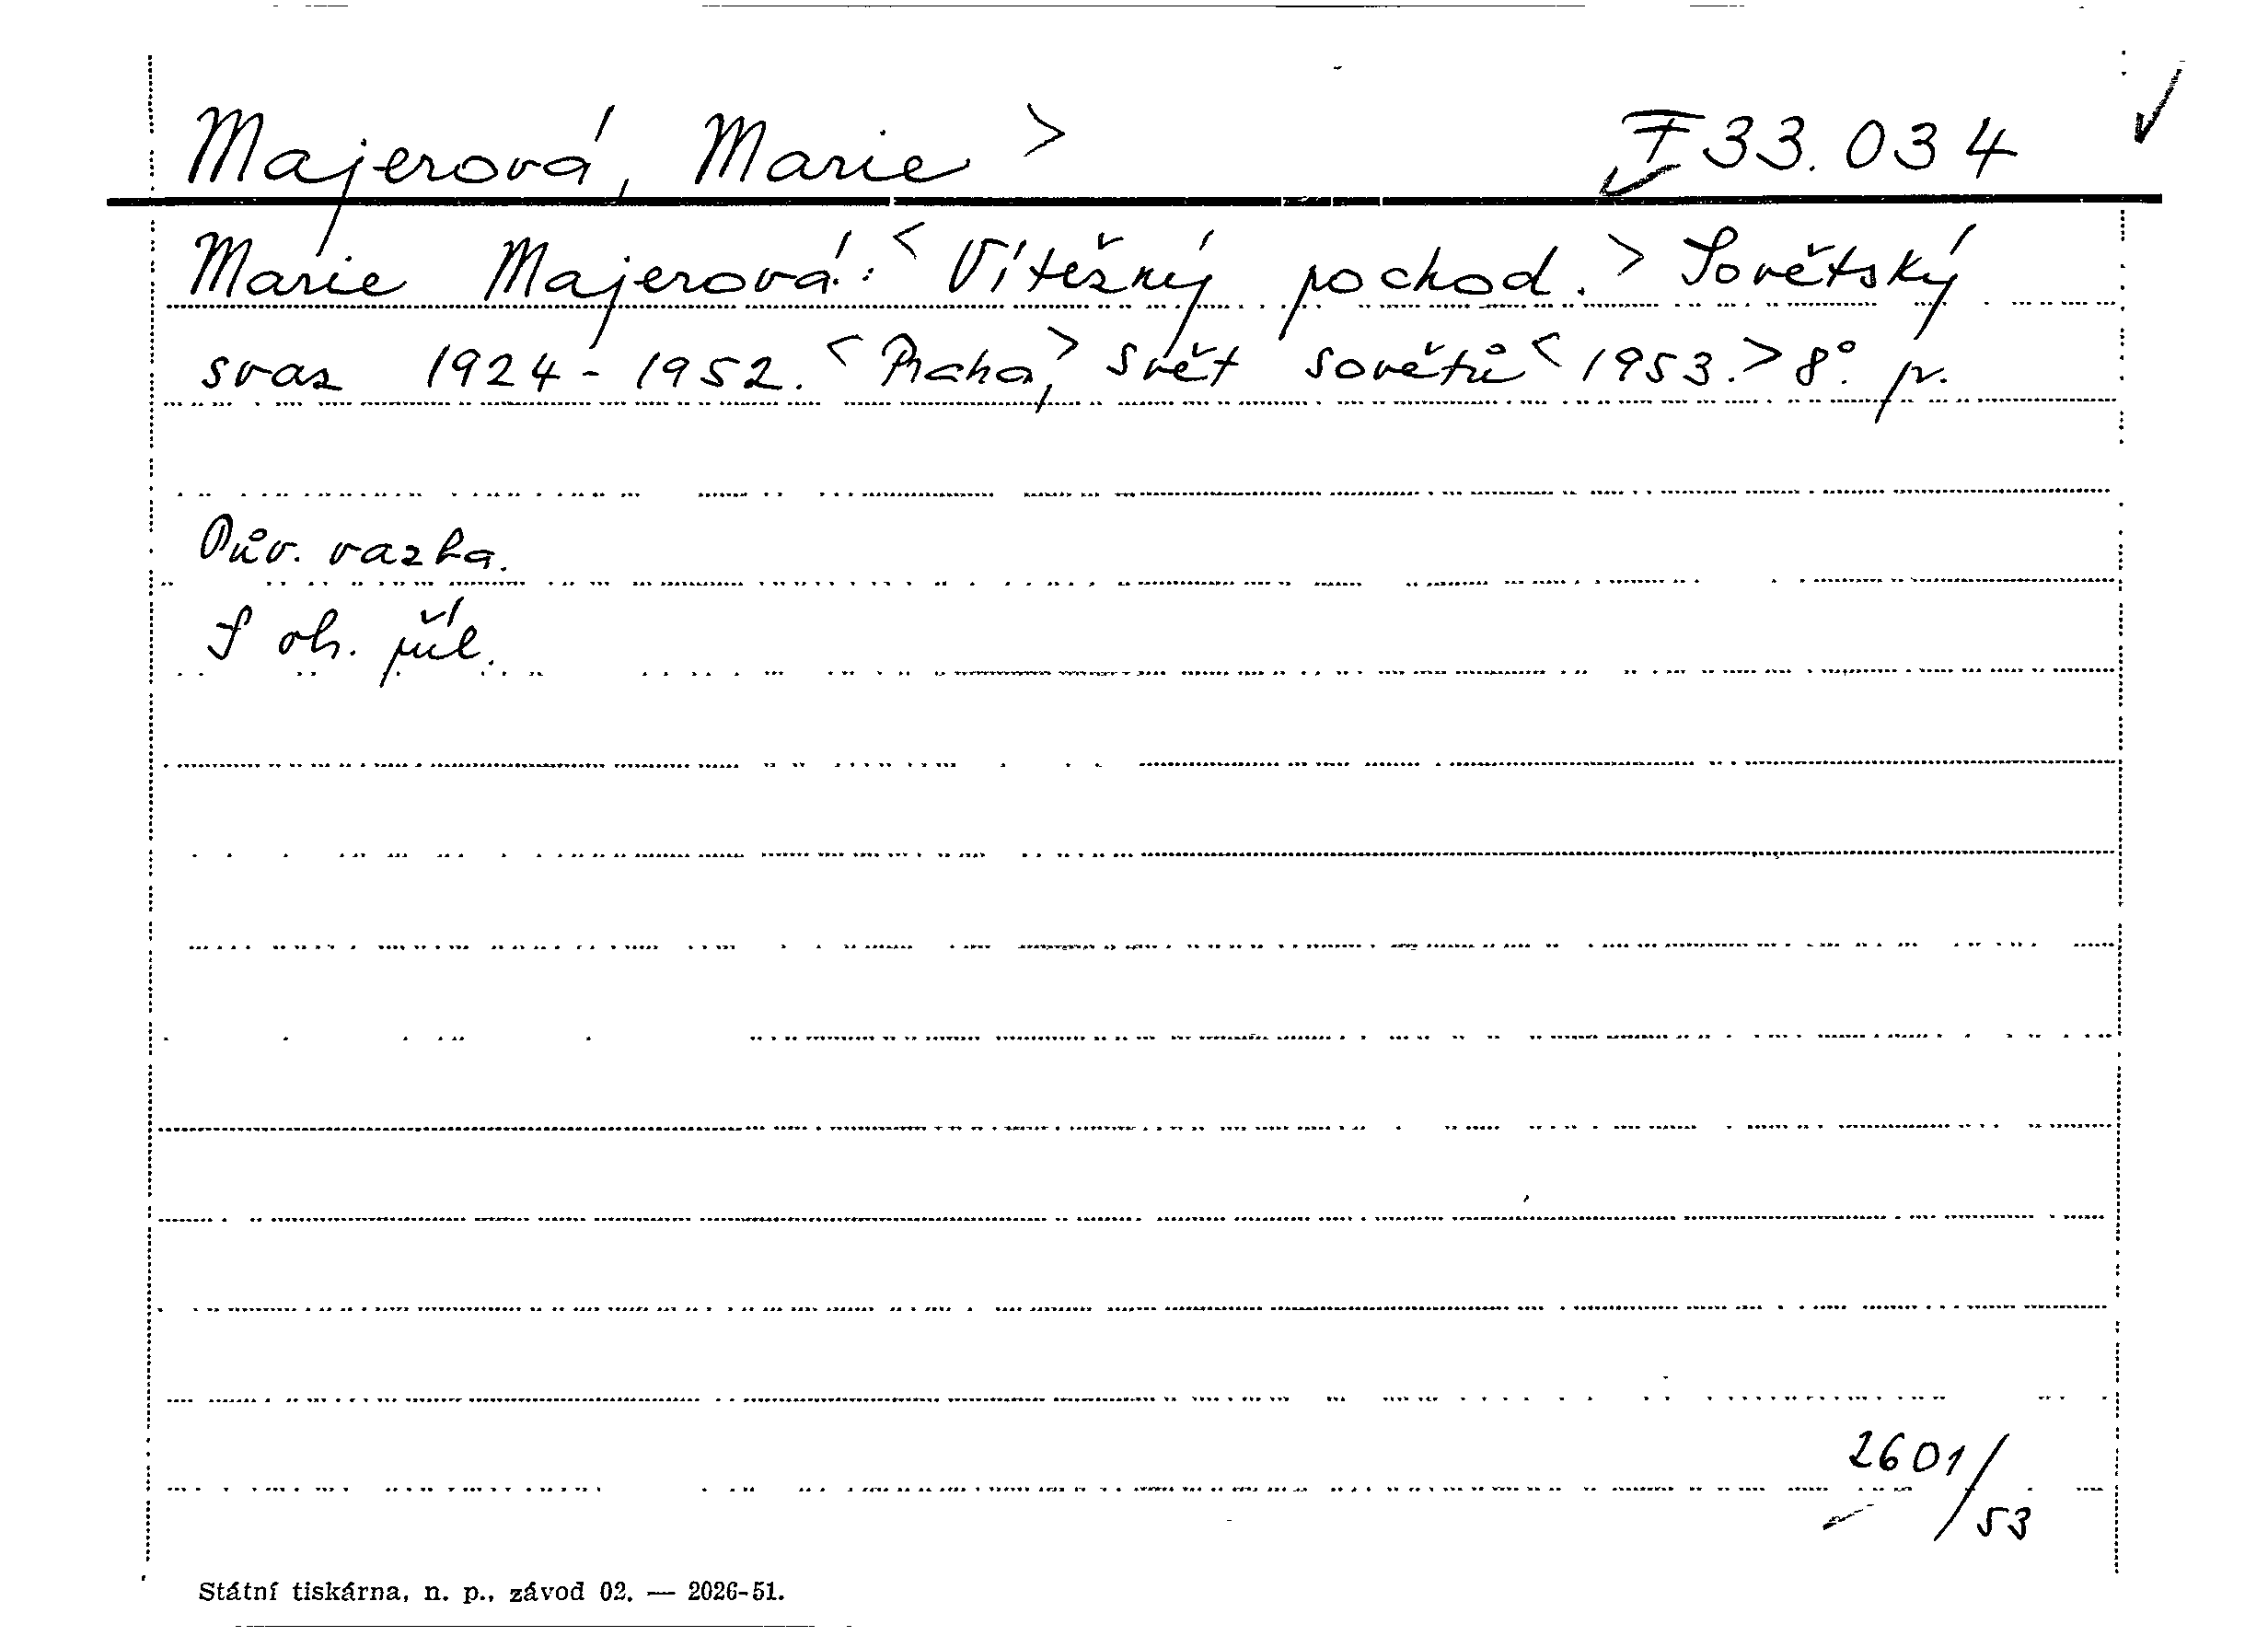 Majerová, Marie > F 33.034
Marie Majerová: < Vítěžný pochod. > Sovětský
svaz 1924-1952. < Praha, > Svět sovětů < 1953. > 8°. pv.
Pův. vazba.
S ob. příl.
2601/53
Státní tiskárna, n. p., závod 02. — 2026-51.